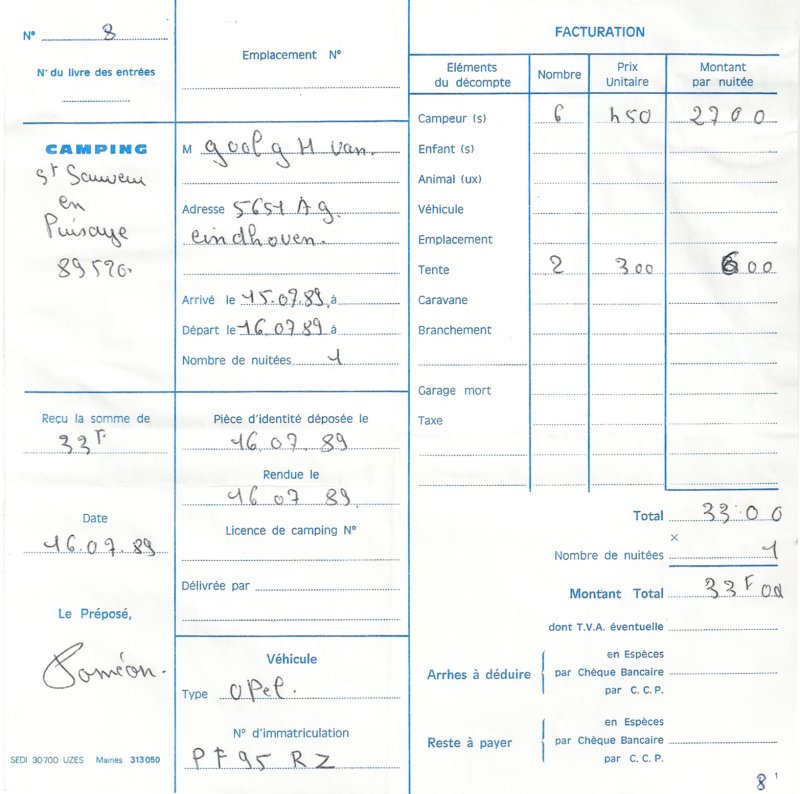 N° 8
N° du livre des entrées
CAMPING
St Sauveur
en
Puisaye
89520.
Reçu la somme de
33F
Date
16.07.89
Le Préposé,
SEDI 30700 UZES Mairies 313050
Emplacement N°
M goolg H van.
Adresse 5651 Ag.
eindhoven.
Arrivé le 15.07.89 à
Départ le 16.07.89 à
Nombre de nuitées 1
Pièce d'identité déposée le
16.07.89
Rendue le
16 07 89
Licence de camping N°
Délivrée par
Véhicule
Type OPel.
N° d'immatriculation
PF95 RZ
FACTURATION
Éléments du décompte Nombre Prix Unitaire Montant par nuitée
Campeur (s) 6 450 2700
Enfant (s)
Animal (ux)
Véhicule
Emplacement
Tente 2 300 600
Caravane
Branchement
Garage mort
Taxe
Total 33 00
× Nombre de nuitées 1
Montant Total 33F00
dont T.V.A. éventuelle
Arrhes à déduire
en Espèces
par Chèque Bancaire
par C.C.P.
Reste à payer
en Espèces
par Chèque Bancaire
par C.C.P.
8 1